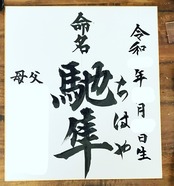 令和 年 月 日生
命名
馳隼
ちはや
父
母